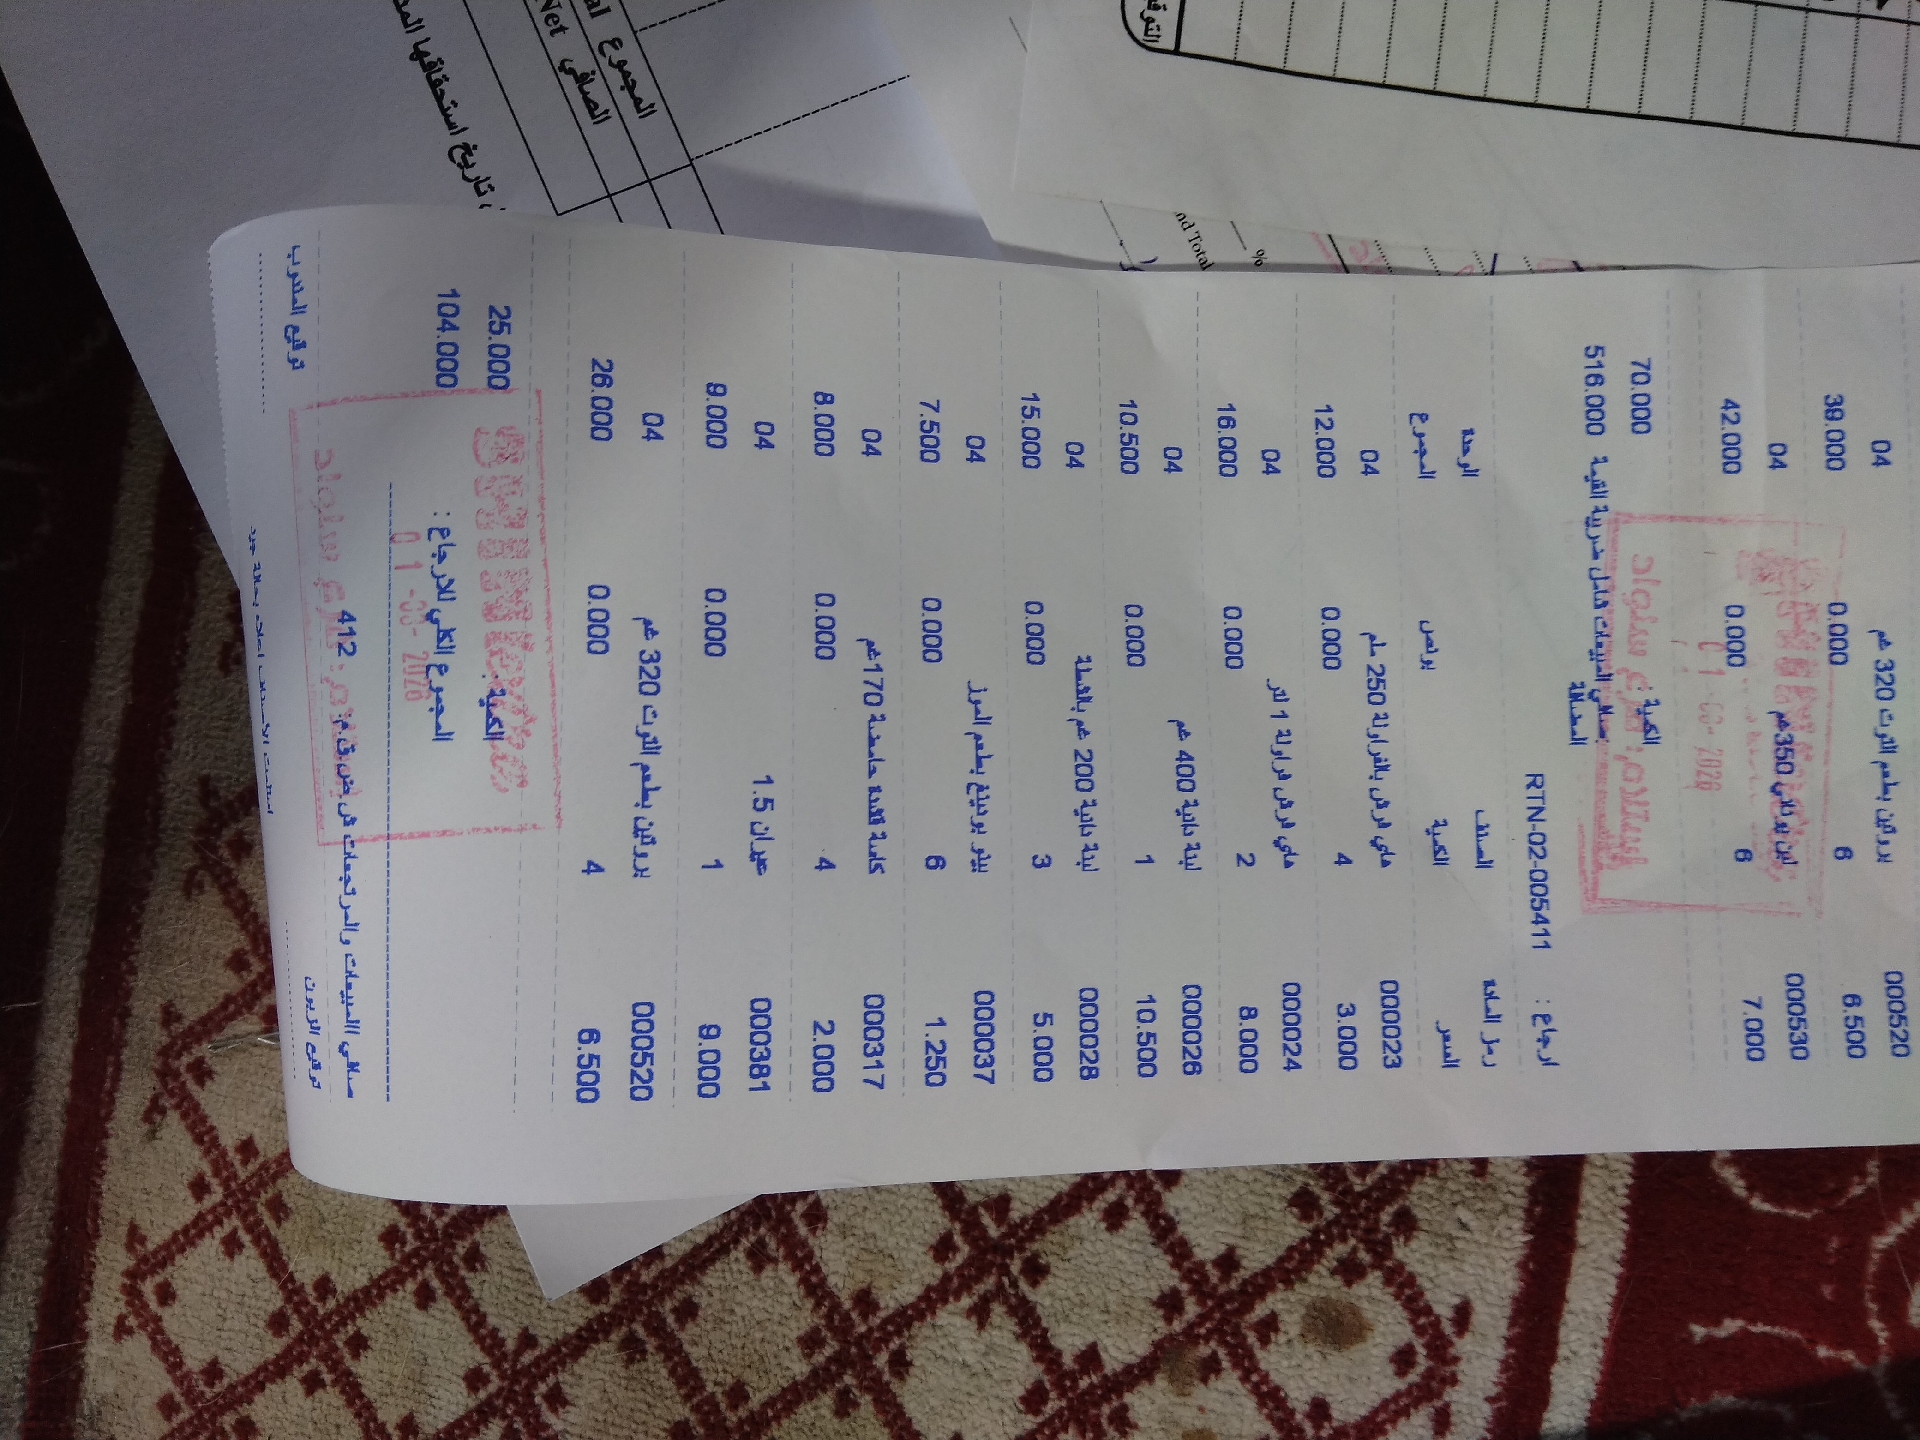 000520 بروتين بطعم التوت 320 غم 04
6.500 6 0.000 39.000
000530 لبن يوناني 350غم 04
7.000 6 0.000 42.000
الكمية 70.000
صافي المبيعات شامل ضريبة القيمة 516.000
المضافة
ارجاع : RTN-02-005411
رمز المادة الصنف الوحدة
السعر الكمية بونص المجموع
000023 هاي فرش بالفراولة 250 ملم 04
3.000 4 0.000 12.000
000024 هاي فرش فراولة 1 لتر 04
8.000 2 0.000 16.000
000026 لبنة دانية 400 غم 04
10.500 1 0.000 10.500
000028 لبنة دانية 200 غم بالقشطة 04
5.000 3 0.000 15.000
000037 بينو بودينغ بطعم الموز 04
1.250 6 0.000 7.500
000317 كاسة قشدة حامضة 170غم 04
2.000 4 0.000 8.000
000381 عيران 1.5 04
9.000 1 0.000 9.000
000520 بروتين بطعم التوت 320 غم 04
6.500 4 0.000 26.000
الكمية : 25.000
المجموع الكلي للارجاع : 104.000
صافي المبيعات والمرتجعات ش.ض.ق.م : 412
توقيع الزبون توقيع المندوب
المجموع
الصافي Net
تاريخ استحقاقها
nd Total
%
استلام: فرع سلواد
استلام: فرع سلواد